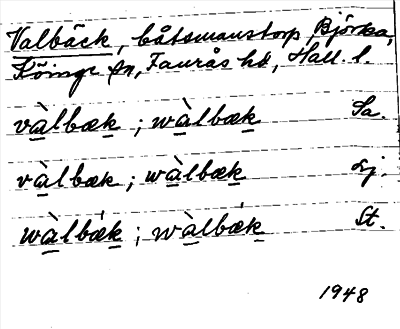 Valbäck, båtsmanstorp, Björka,
Köinge sn, Faurås hd, Hall. l.
vàlbæk ; wàlbæk Sa.
vàlbæk ; wàlbæk sj.
wàlbǽk ; wàlbǽk St.
1948